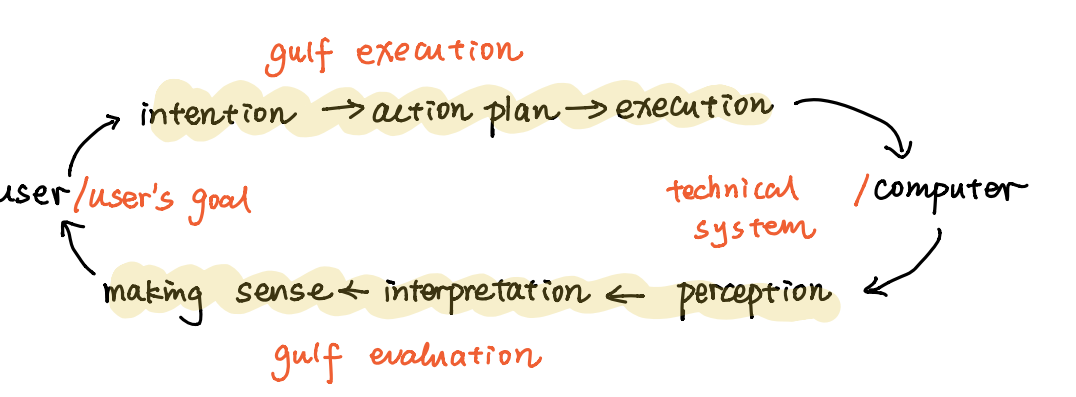 gulf execution
intention → action plan → execution
user /user's goal
technical system /computer
making sense ← interpretation ← perception
gulf evaluation